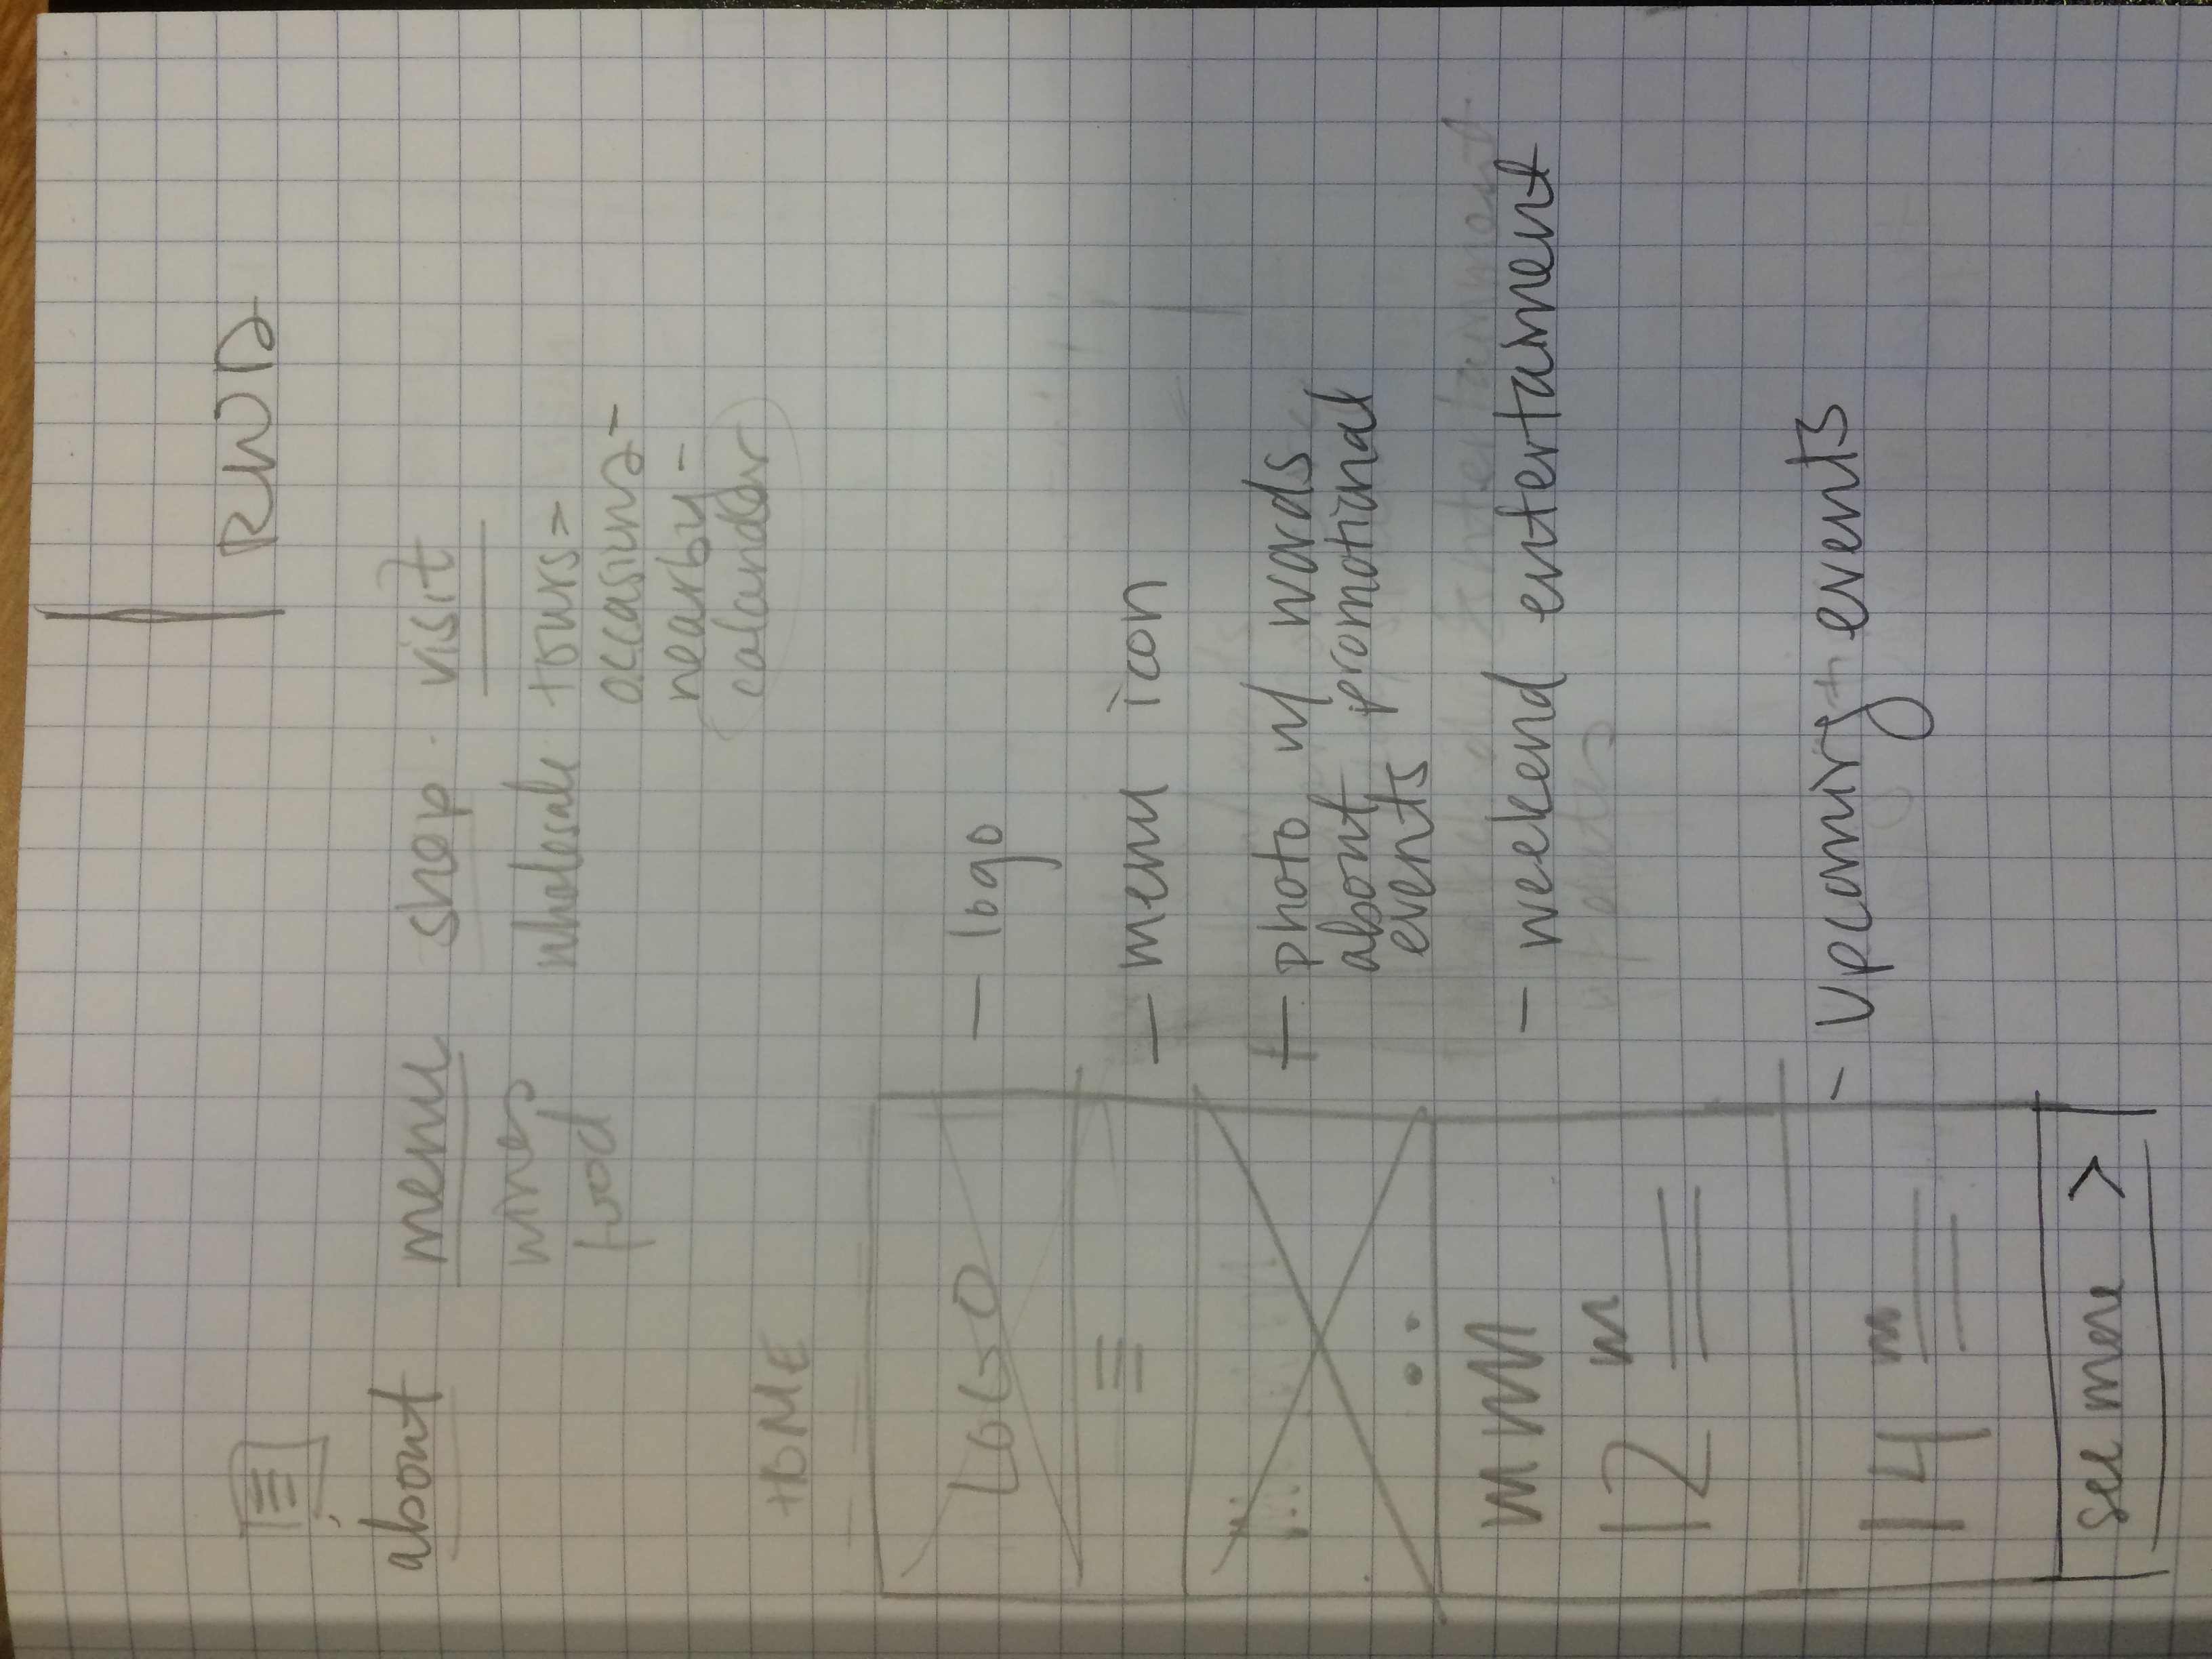 RWD
about menu shop visit
wines wholesale tours
food occasions
nearby
calander
HOME
LOGO - logo
- menu icon
- photo w/ words
about promotional
events
- weekend entertaiment
12
- Upcoming events
14
see more >